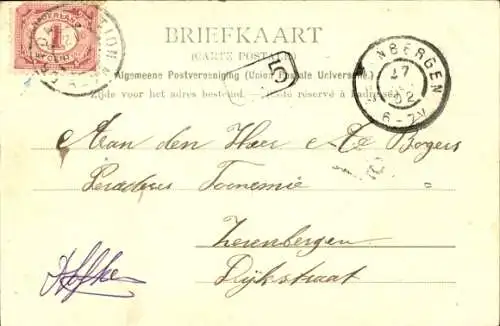 NEDERLAND
1
CENT
BRIEFKAART
(CARTE POSTALE)
Algemeene Postvereeniging (Union Postale Universelle)
Zijde voor het adres bestemd. Côté réservé à l'adresse.
NBERGEN
17
02
6-7V
Aan den Heer A de Bogers
Zevenbergen
Dijkstraat